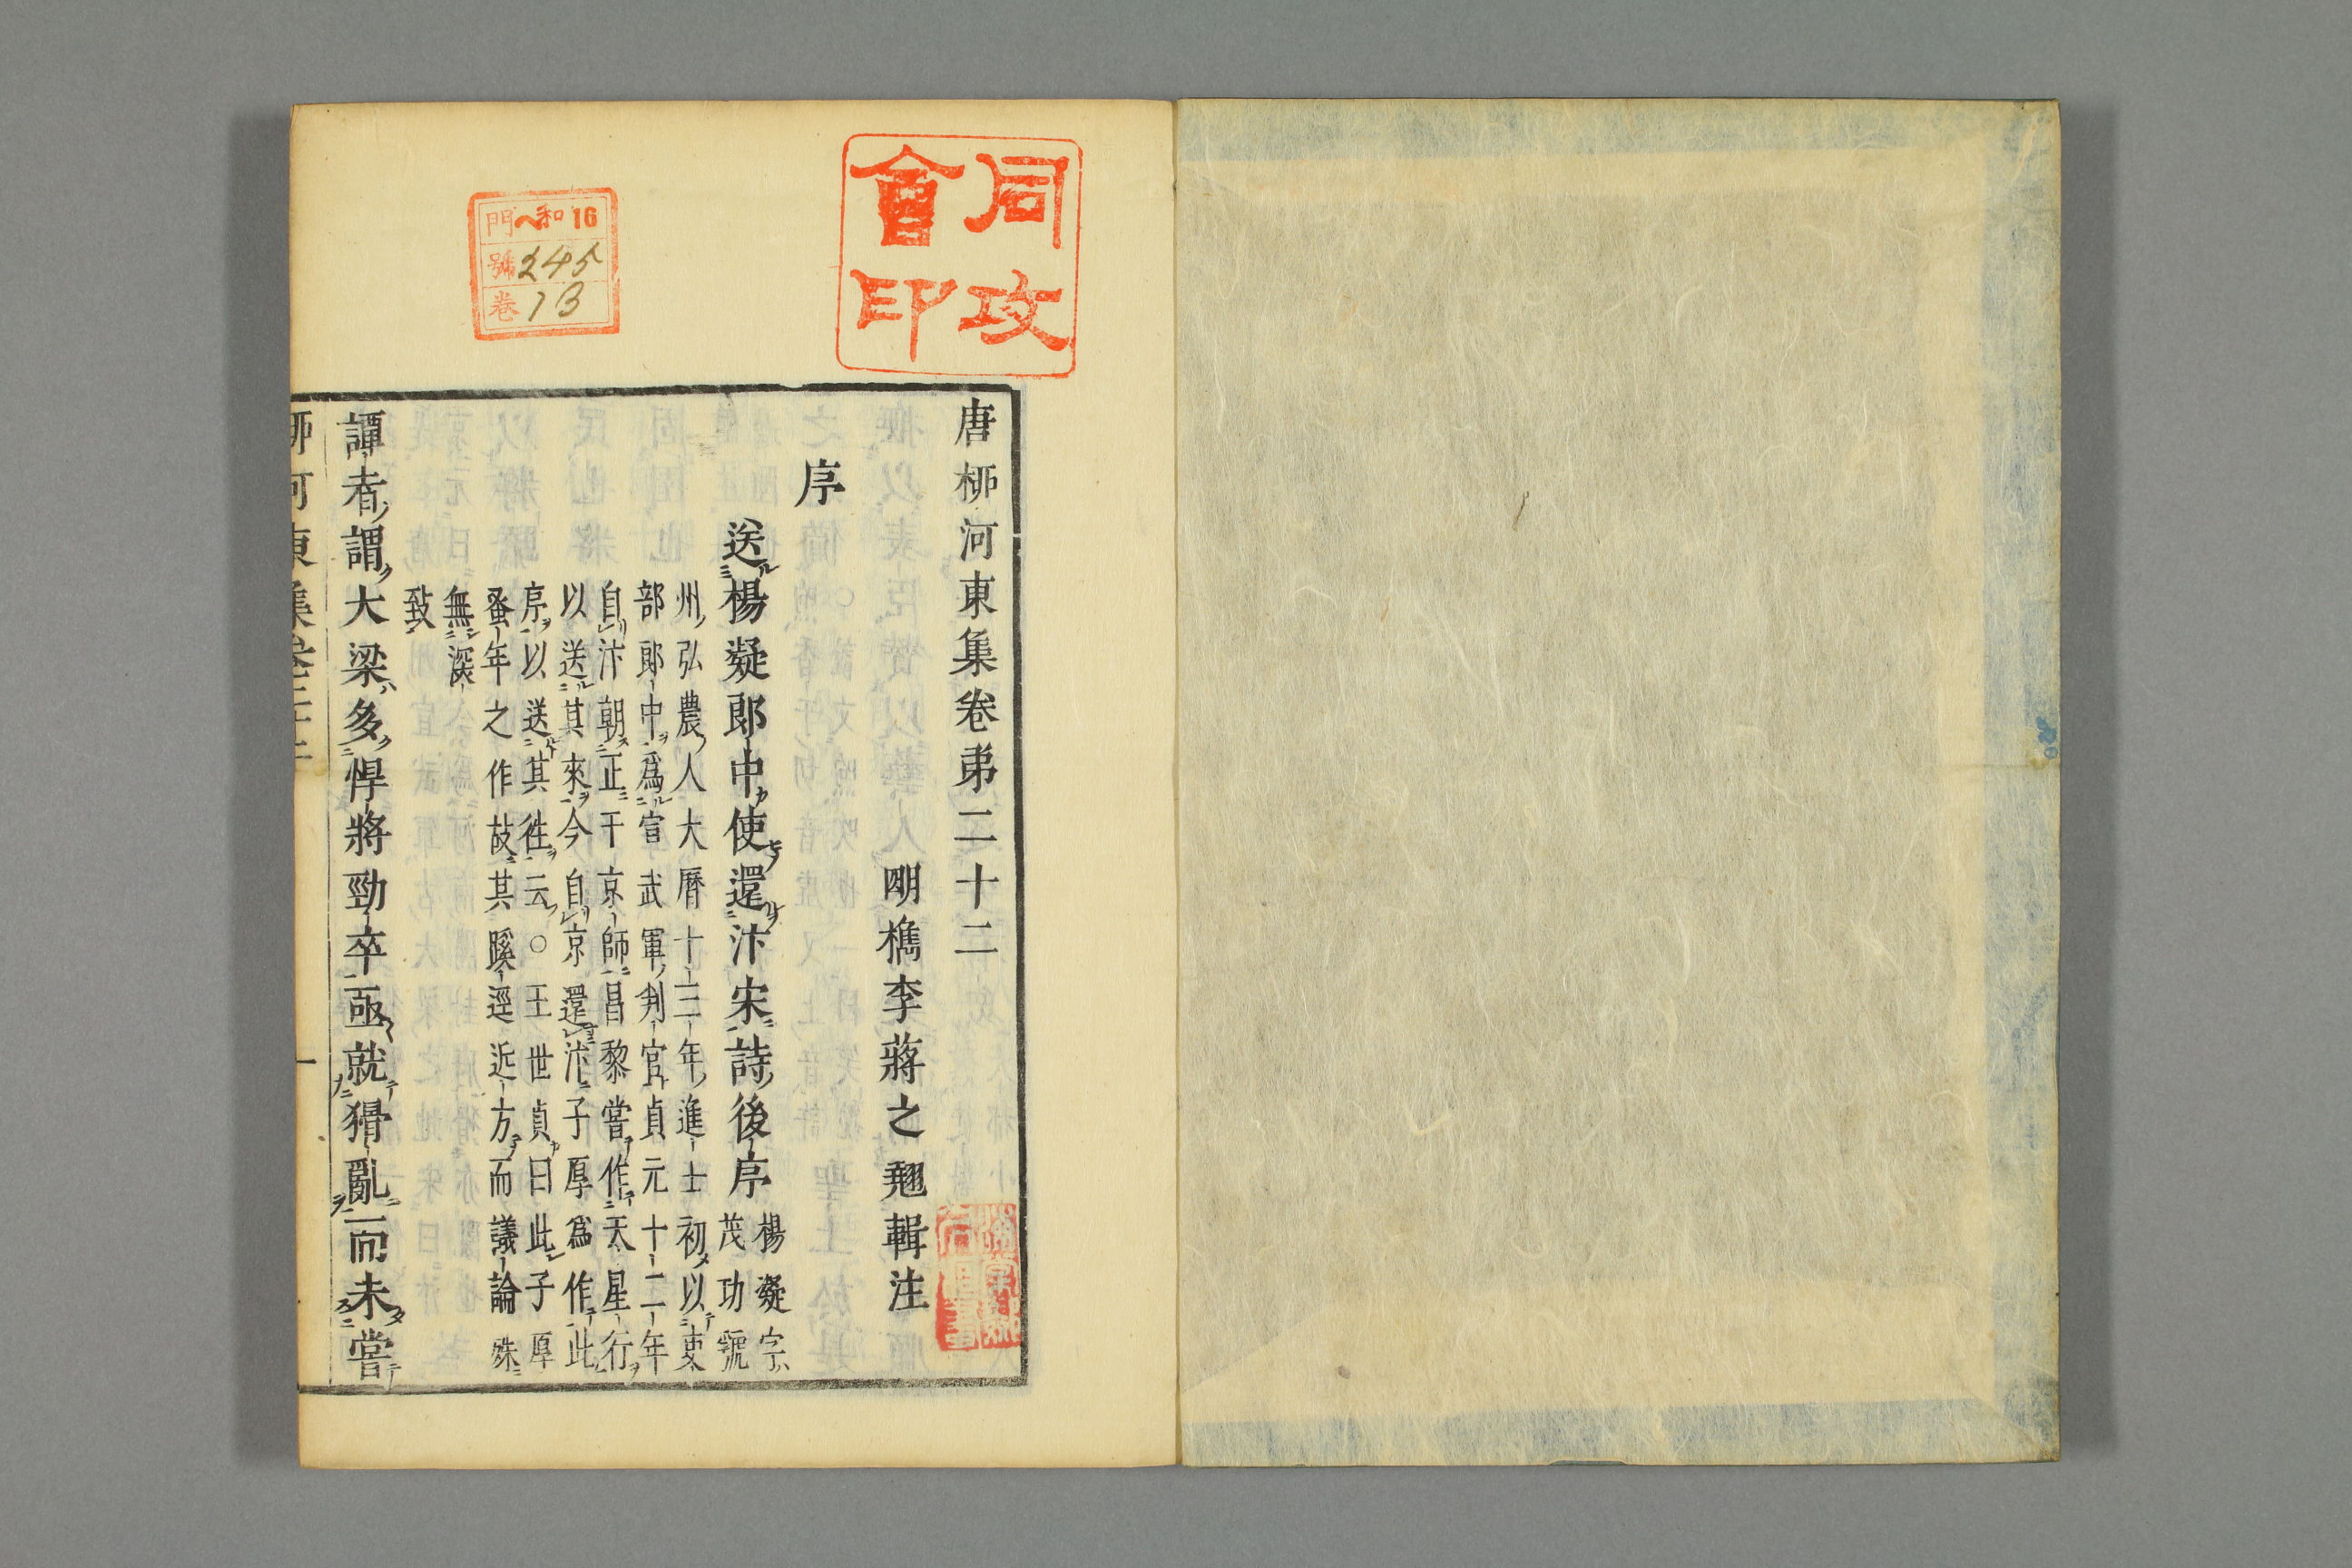 同攻
會印
門 ヘ和16
號 245
卷 13
唐栁河東集卷弟二十二
明檇李蔣之翹輯注
序
送楊凝郎中使還汴宋詩後序
楊凝字
茂功虢
州弘農人大曆十三年進士初以吏
部郎中爲宣武軍判官貞元十二年
自汴朝正于京師昌黎嘗作天星行
以送其來今自京還汴子厚爲作此
序以送其徃云○王世貞曰此子厚
蚤年之作故其蹊逕近方而議論殊
無深
致
譚者謂大梁多悍將勁卒亟就猾亂而未嘗
栁河東集卷二十二
一